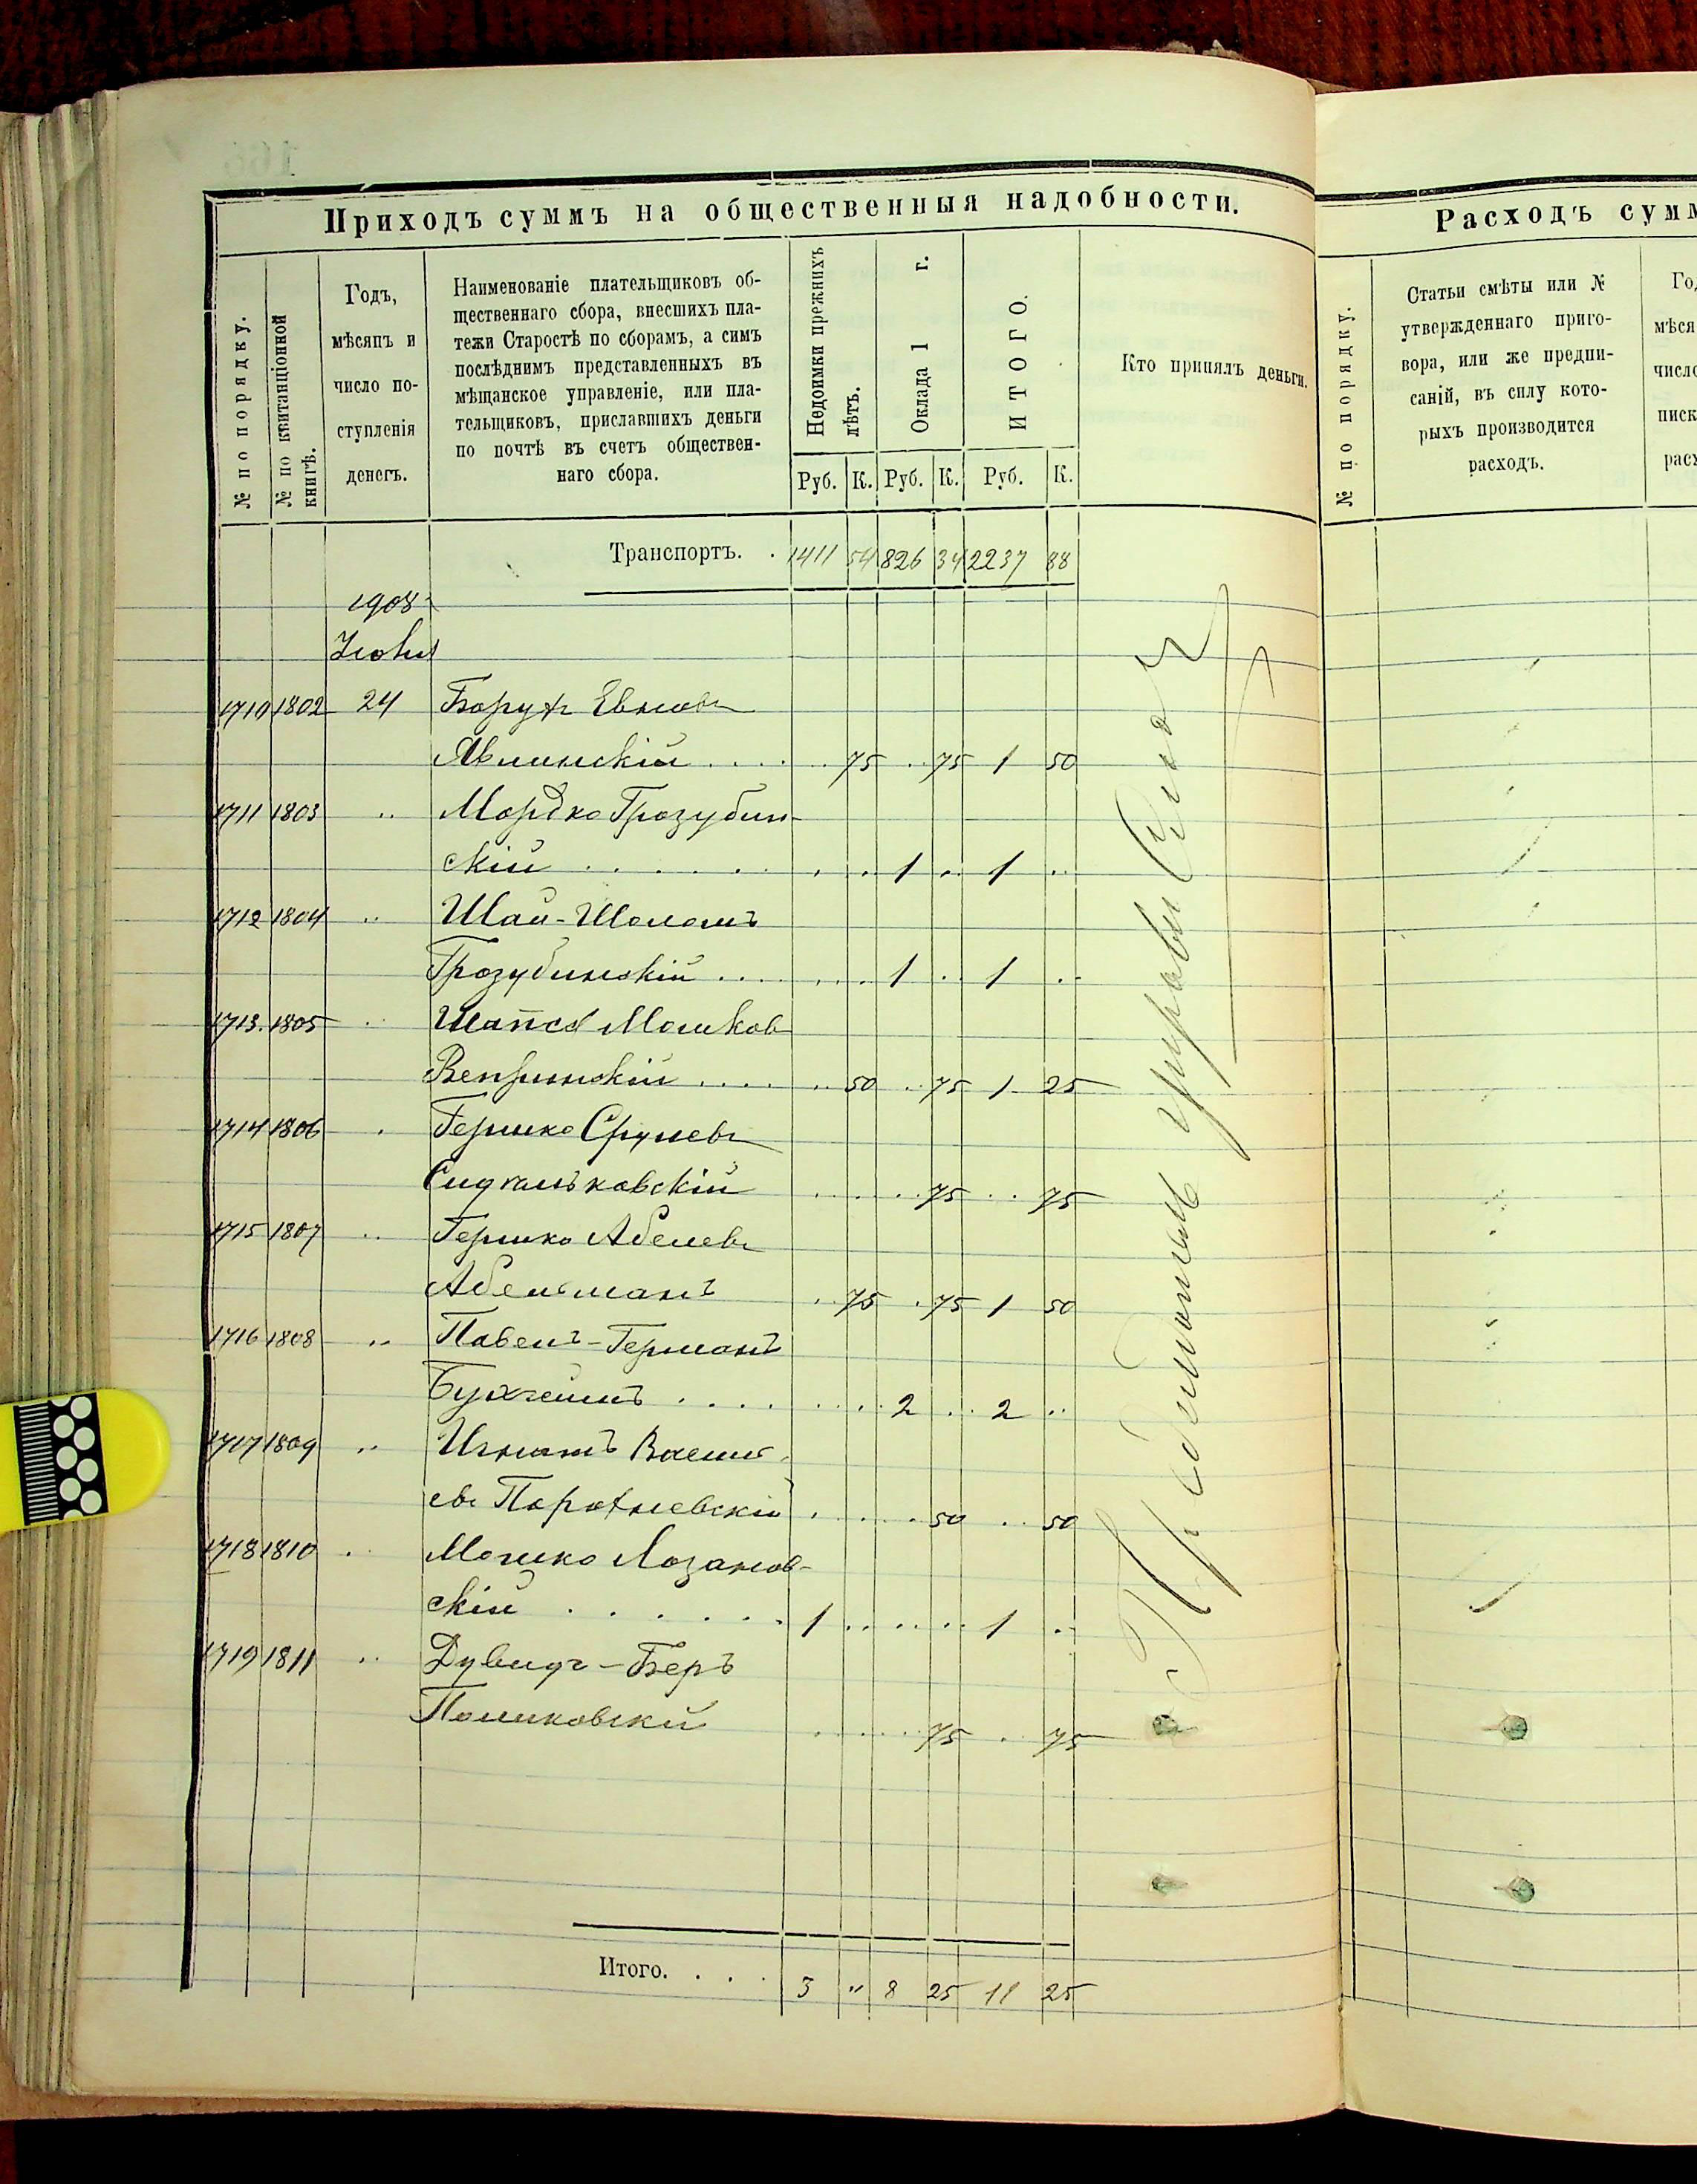 Приходъ суммъ на общественныя надобности.
№ по порядку.
№ по квитанціонной книгѣ.
Годъ,
мѣсяцъ и
число по-
ступленія
денегъ.
Наименованіе плательщиковъ об-
щественнаго сбора, внесшихъ пла-
тежи Старостѣ по сборамъ, а симъ
послѣднимъ представленныхъ въ
мѣщанское управленіе, или пла-
тельщиковъ, приславшихъ деньги
по почтѣ въ счетъ обществен-
наго сбора.
Недоимки прежнихъ лѣтъ.
Оклада 1 г.
ИТОГО.
Руб. К. Руб. К. Руб. К.
Кто принялъ деньги.
Транспортъ. . 1411 54 826 34 2237 88
1908
Іюня
1710 1802 24 Борухъ Евновъ
Явлинскій . . . . . . 75 . . 75 1 50
1711 1803 .. Мордко Грозубин-
скій . . . . . . . . 1 .. 1 ..
1712 1804 .. Шая-Шоломъ
Грозубинскій . . . . . . . 1 .. 1 ..
1713. 1805 .. Шапся Мошков
Вепринскій . . . . . . 50 .. 75 1 25
1714 1806 . Гершко Срулевъ
75 . . 75
1715 1807 .. Гершко Абелевъ
Абельманъ .. 75 . 75 1 50
1716 1808 .. Павелъ-Германъ
Бухгеймъ . . . . . . . . 2 .. 2 ..
1717 1809 .. Игнатъ Васил
евъ . . . . 50 . . 50
1718 1810 . Мошко Лозанов-
скій . . . . . . 1 . . . . . . 1 ..
1719 1811 .. Дувидъ-Беръ
75 . 75
Итого. . . . 3 " 8 25 11 25
Расходъ сумм
№ по порядку.
Статьи смѣты или №
утвержденнаго приго-
вора, или же предпи-
саній, въ силу кото-
рыхъ производится
расходъ.
Го
мѣся
число
писк
расх